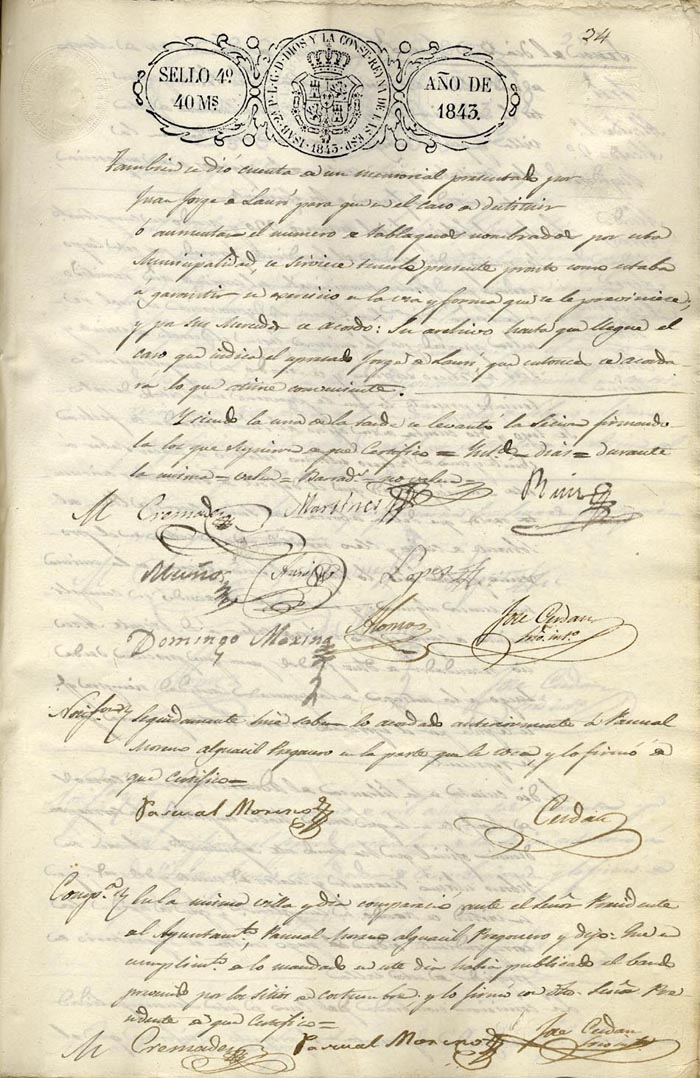 24
SELLO 4º
40 Ms
ISAB. 2ª P. L. G. D. DIOS Y LA CONST. REYNA DE LAS ESP. 1843
AÑO DE
1843.
Tambien se dió cuenta de un memorial presentado por
Juan Jorge de Lauri para que en el caso de
ó aumentar el numero de nombrados por esta
Municipalidad, se sirviese tenerlo presente pronto como estaba
a garantir su exercicio en la via y forma que se le previniese;
y por sus Mercedes se acordó: Su archivo hasta que llegue el
caso que indica el Jorge de Lauri que entonces se acorda
rá lo que estime conveniente.
Y siendo la una de la tarde se levantó la Sesion firmando
la los que supieron de que Certifico = = dias = durante
la misma = valen = no valen =
M Cremades Martinez Ruiz
Muñoz Lopez
Domingo Molina Alonso Jose Cerdan
Srio. intº.
Seguidamente hice saber lo acordado anteriormente á Pascual
Moreno alguacil Pregonero en la parte que le toca, y lo firmó de
que certifico =
Pascual Moreno Cerdan
Compª. En la misma villa y dia compareció ante el Señor Presidente
del Ayuntamtº. Pascual Moreno alguacil Pregonero y dijo: Que en
cumplimtº. de lo mandado en este dia habia publicado el bando
prevenido por los sitios de costumbre y lo firmo con dho. Señor Pre
sidente de que Certifico =
M Cremades Pascual Moreno Jose Cerdan
Srio. intº.